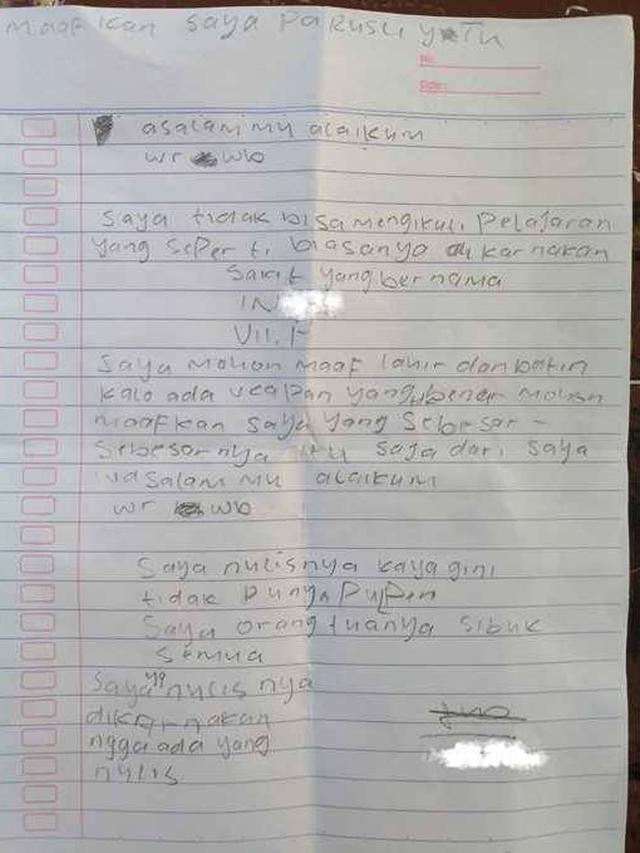 maafkan saya Pa Rusli
No.
Date.
asalamimu alaikum
wr wb
saya tidak bisa mengikuti Pelajaran
yang seperti biasanya di karnakan
sakit yang bernama
IN
VII.
Saya mohon maaf lahir dan batin
kalo ada ucapan yang bener mohon
maafkan saya yang sebesar-
sebesarnya itu saja dari saya
vasalamimu alaikum
wr wb
Saya nulisnya kaya gini
tidak punya pulpen
Saya orang tuanya sibuk
semua
saya yg nulis nya
dikarnakan
ngga ada yang
nulis